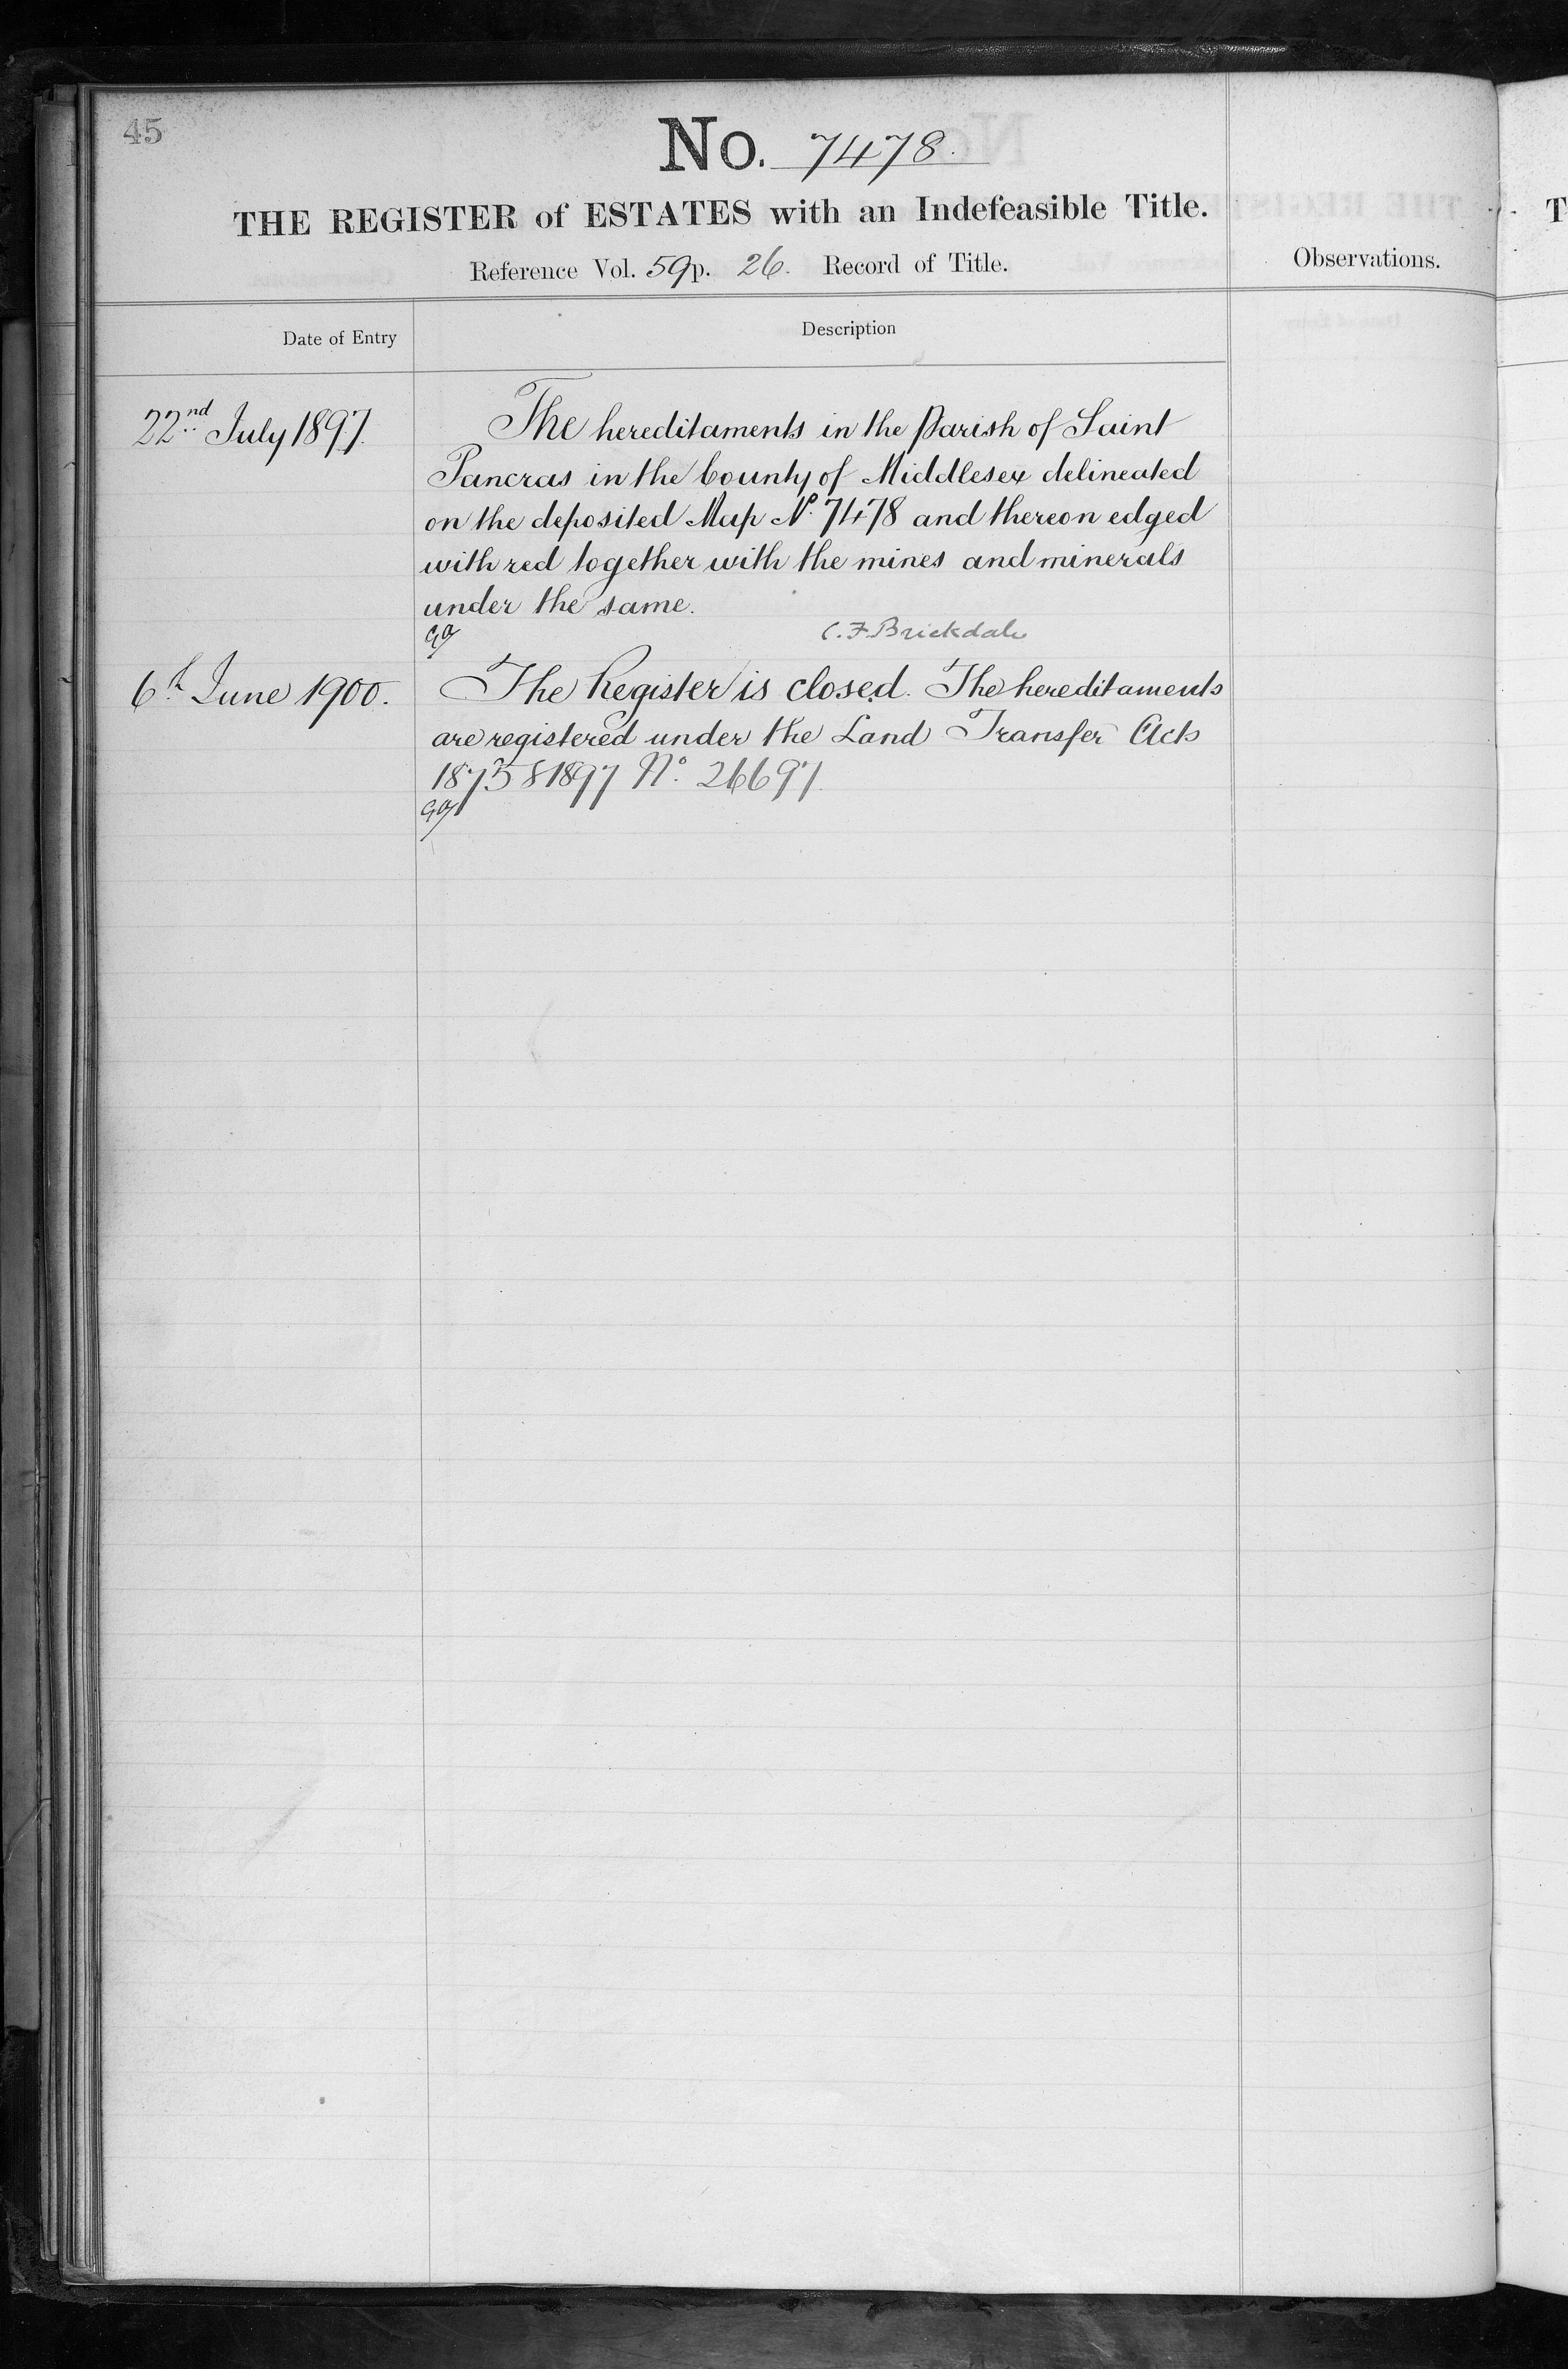 45
No. 7478.
THE REGISTER of ESTATES with an Indefeasible Title.
Reference Vol. 59 p. 26. Record of Title.
Observations.
Date of Entry
Description
22nd July 1897.
The hereditaments in the Parish of Saint
Pancras in the County of Middlesex delineated
on the deposited Map No. 7478 and thereon edged
with red together with the mines and minerals
under the same.
C. F. Brickdale
6th June 1900.
The Register is closed. The hereditaments
are registered under the Land Transfer Acts
1875 & 1897 No. 26697.